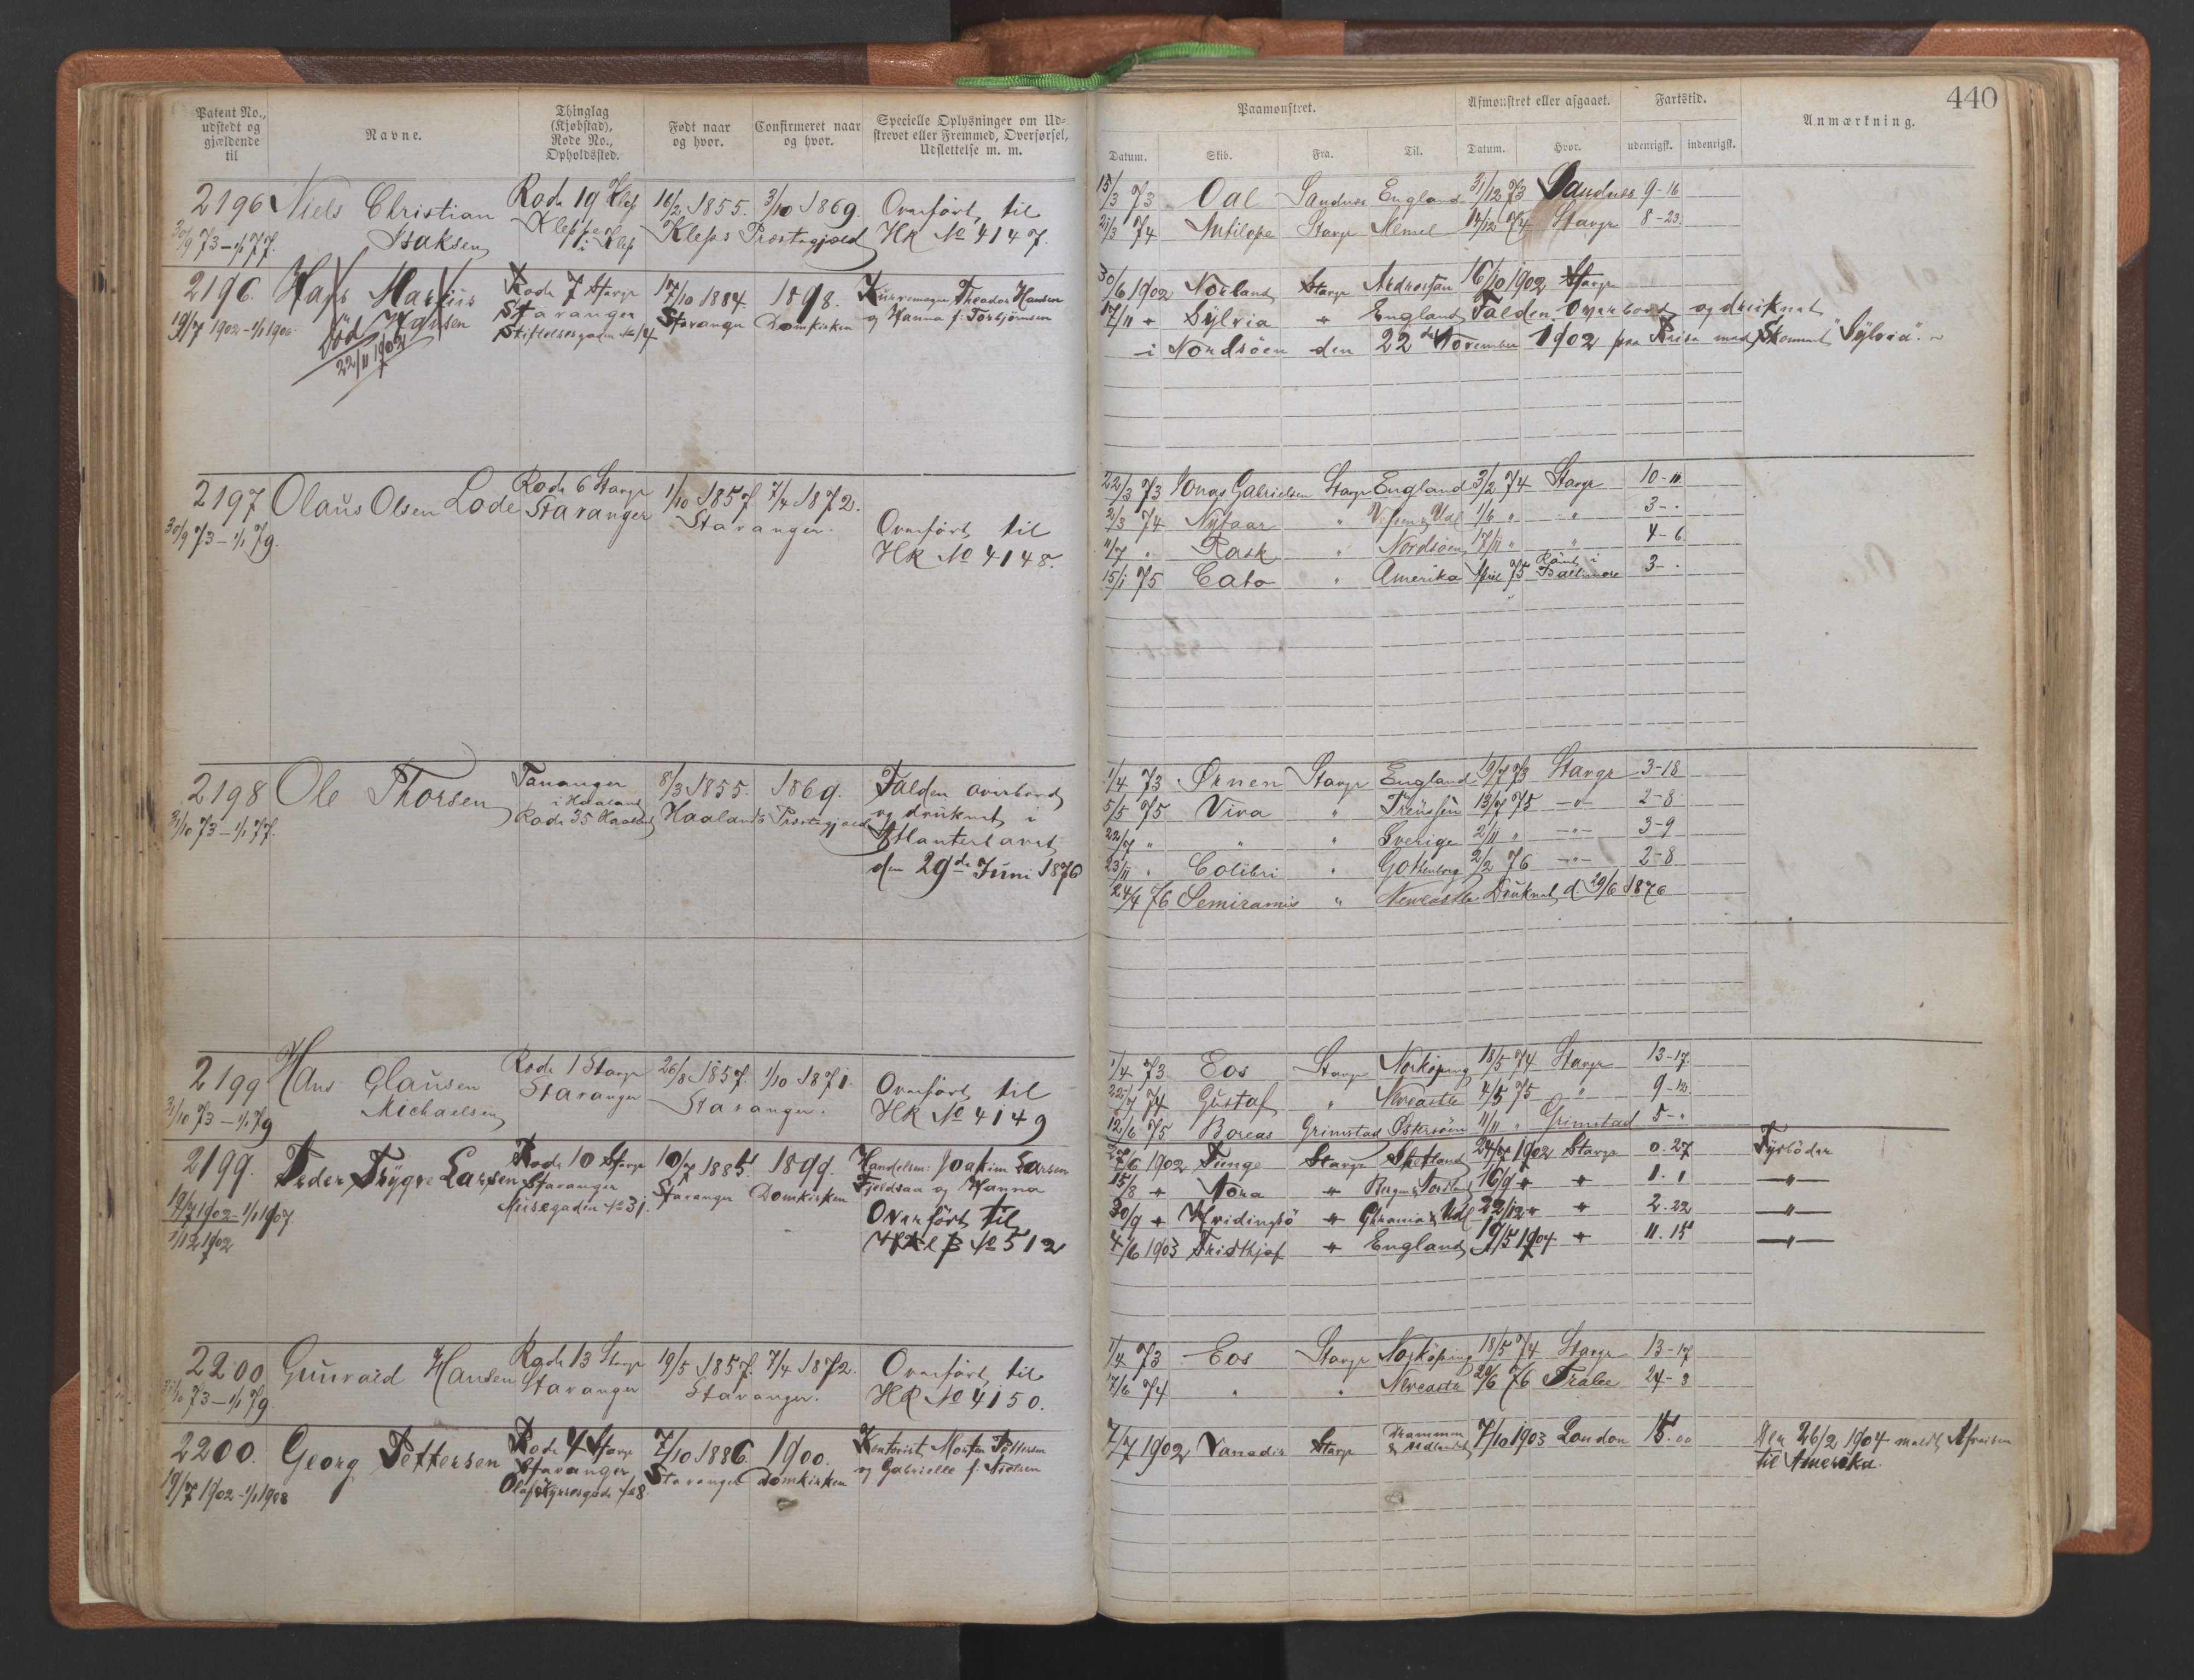 440
Patent No., udstedt og gjældende til
Navne.
Thinglag (Kjøbstad), Rode No., Opholdssted.
Født naar og hvor.
Confirmeret naar og hvor.
Specielle Oplysninger om Udstrevet eller Fremmed, Overførsel, Udslettelse m. m.
Paamønstret.
Afmønstret eller afgaaet.
Fartstid.
Anmærkning.
Datum. Skib. Fra. Til. Datum. Hvor. udenrigsk. indenrigsk.
2196 Niels Christian Rode 19 Klep 16/2 1855. 3/10 1869. Overført til
30/9 73 – 1/1 77. Isaksen Kleppe i Klep Kleps Præstegjæld HR No 4147.
15/3 73 Oal Sandnes England 31/12 73 Sandnes 9-16
21/3 74 Antilope Stavgr Memel 14/12 74 Stavgr 8-23.
2196. Hans Martius Rode 7 Stavgr 17/10 1884 1898. Kurvemager Theodor Hansen
19/7 1902 - 1/1 190 Hansen Stavanger Stavanger Domkirken og Hanna f. Torbjørnsen
Död Stiftelsesgaden No 14
22/11 1902
30/6 1902 Norland Stavgr Ardrossan 16/10 1902 Stavgr
17/11 " Sylvia " England Falden Overbord og druknet
i Nordsöen den 22de November 1902 paa Reise med Skonnert "Sylvia".
2197 Olaus Olsen Lode Rode 6 Stavgr 1/10 1857. 7/4 1872.
30/9 73 – 1/1 79. Stavanger Stavanger. Overført til
HR No 4148.
22/3 73 Jonas Gabrielsen Stavgr England 3/2 74 Stavgr 10-11
2/3 74 Nytaar " Udl 1/6 " " 3-.
11/7 " Rask " Nordsöen 17/11 " " 4-6.
15/1 75 Cato " Amerika April 75 Römt i Baltimore 3-.
2198 Ole Thorsen Tananger 8/3 1855. 1869. Falden overbord
31/10 73 – 1/1 77. i Haaland Haalands Præstegjæld og druknet i
Rode 35 Haaland Atlanterhavet
den 29de Juni 1876
1/4 73 Ørnen Stavgr England 19/7 73 Stavgr 3-18
5/5 75 Viva " Preussen 13/7 75 -"- 2-8.
22/7 " " " Sverige 2/11 " -"- 3-9
23/11 " Colibri " Gothenborg 2/2 76 -"- 2-8
24/4 76 Semiramis " Newcastle Druknet d. 29/6 1876
2199 Hans Clausen Rode 1 Stavgr 26/8 1857. 1/10 1871. Overført til
31/10 73 – 1/1 79 Michaelsen Stavanger Stavanger. HR No 4149
1/4 73 Eos Stavgr Norköping 18/5 74 Stavgr 13-17.
22/7 74 Gustaf " Newcastle 4/5 75 " 9-12
12/6 75 Boreas Grimstad Östersöen 11/11 " Grimstad 5-.
2199. Peder Trygve Larsen Rode 10 Stavgr 10/7 1885 1899. Handelsm: Joakim Larsen
19/7 1902 - 1/1 1907. Stavanger Stavanger Domkirken Fjeldsaa og Hanna
1/12 1902 Musegaden No 31. Overført til
HR l B No 512
27/6 1902 Tunge Stavgr Shetland 24/7 1902 Stavgr 0.27 Fyrböder
15/8 " Nora " Bergen & Nordland 16/9 " " 1.1 -"-
30/9 " Hvidingsö " Chrania & Udl 22/12 " " 2.22 -"-
4/6 1903 Fridthjof " England 19/5 1904 " 11.15 -"-
2200 Gunvald Hansen Rode 13 Stavgr 19/5 1857. 7/4 1872. Overført til
31/10 73 – 1/1 79 Stavanger Stavanger. HR No 4150.
1/4 73 Eos Stavgr Norköping 18/5 74 Stavgr 13-17
17/6 74 " " Newcastle 20/6 76 Tralee 24-3
2200. Georg Pettersen Rode 4 Stavgr 7/10 1886 1900. Kontorist Morten Pettersen
19/7 1902 - 1/1 1908 Stavanger Stavanger Domkirken og Gabrielle f. Nielsen
Olaf Kyrresgade No 8.
7/7 1902 Vanadis Stavgr Drammen & Udlandet 7/10 1903 London 15.00 Den 26/2 1904 meldt Afreisen
til Amerika.